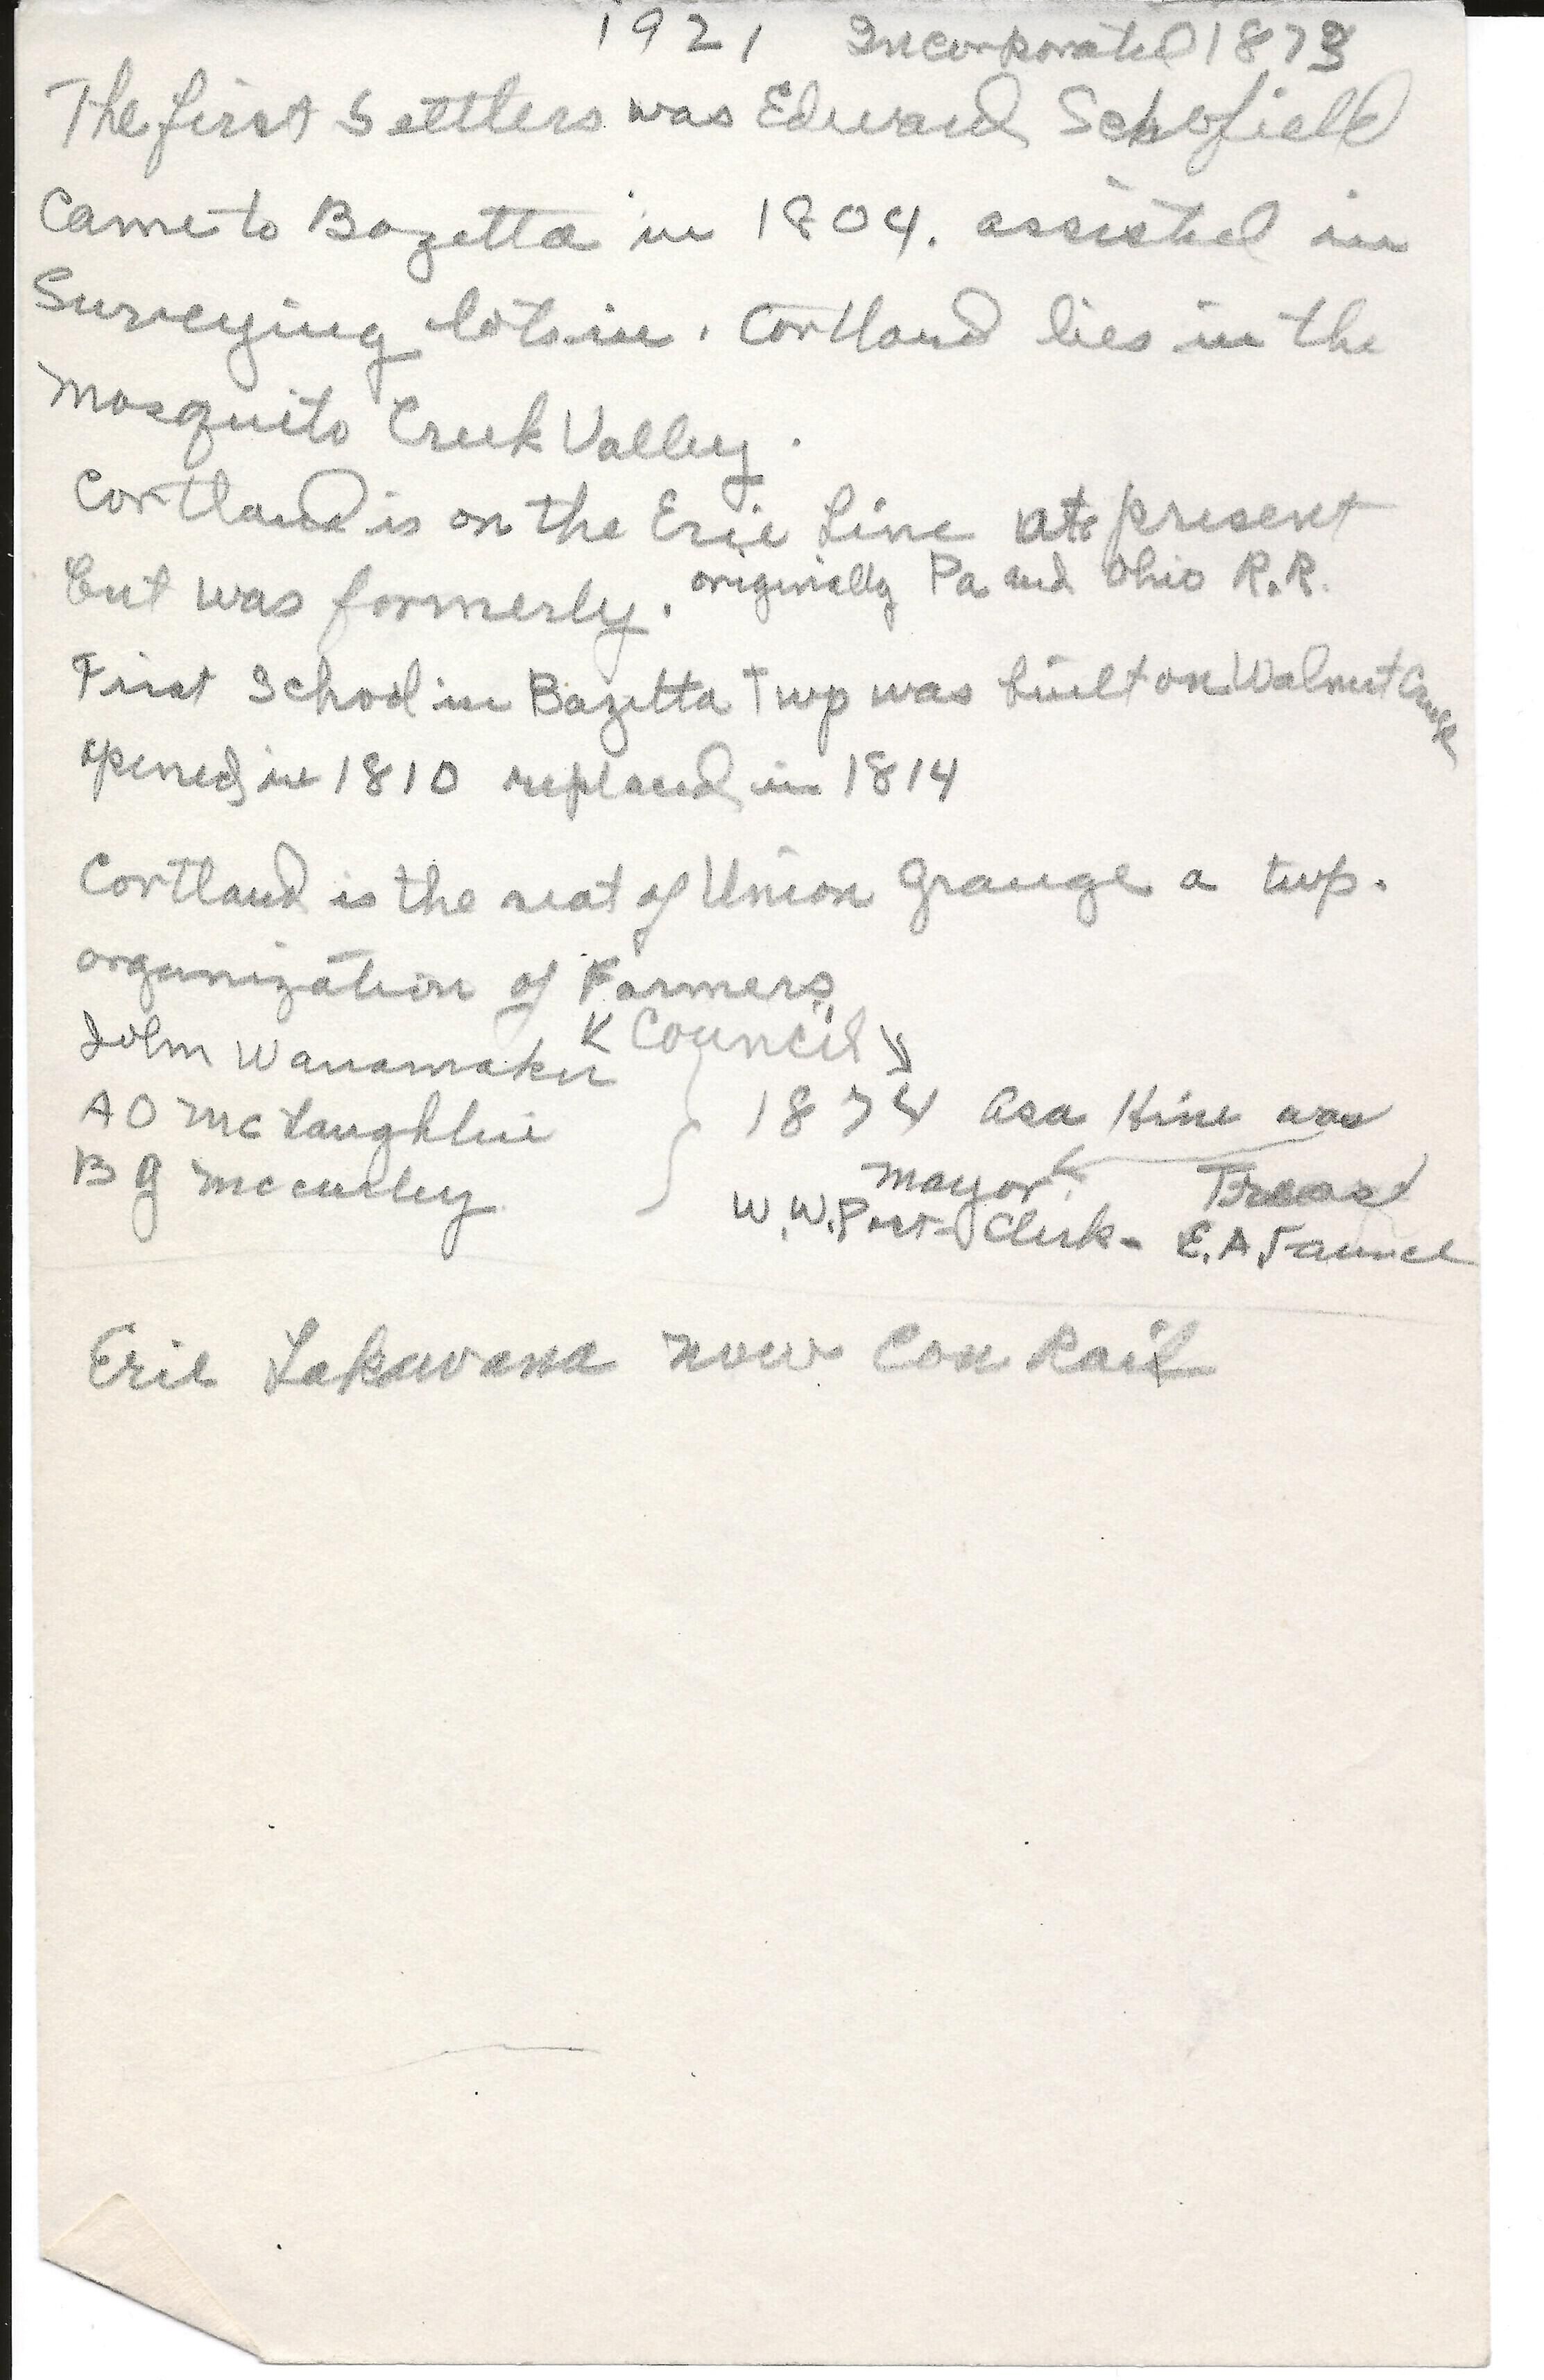 1921 Incorporated 1873
The first Settlers was Edward Schofield
Came to Bazetta in 1804. assisted in
Surveying lots in. Cortland lies in the
Mosquito Creek Valley.
Cortland is on the Erie Line at present
but was formerly. originally Pa and Ohio R.R.
First School in Bazetta Twp was built on Walnut Creek
opened in 1810 replaced in 1814
Cortland is the seat of Union Grange a twp.
organization of Farmers
John Wanamaker Council
A O McLaughlin 1874 Asa Hine was
B G McCurley Mayor Treas
W.W. Post Clerk - E. A. Faunce
Erie Lakawana now Con Rail